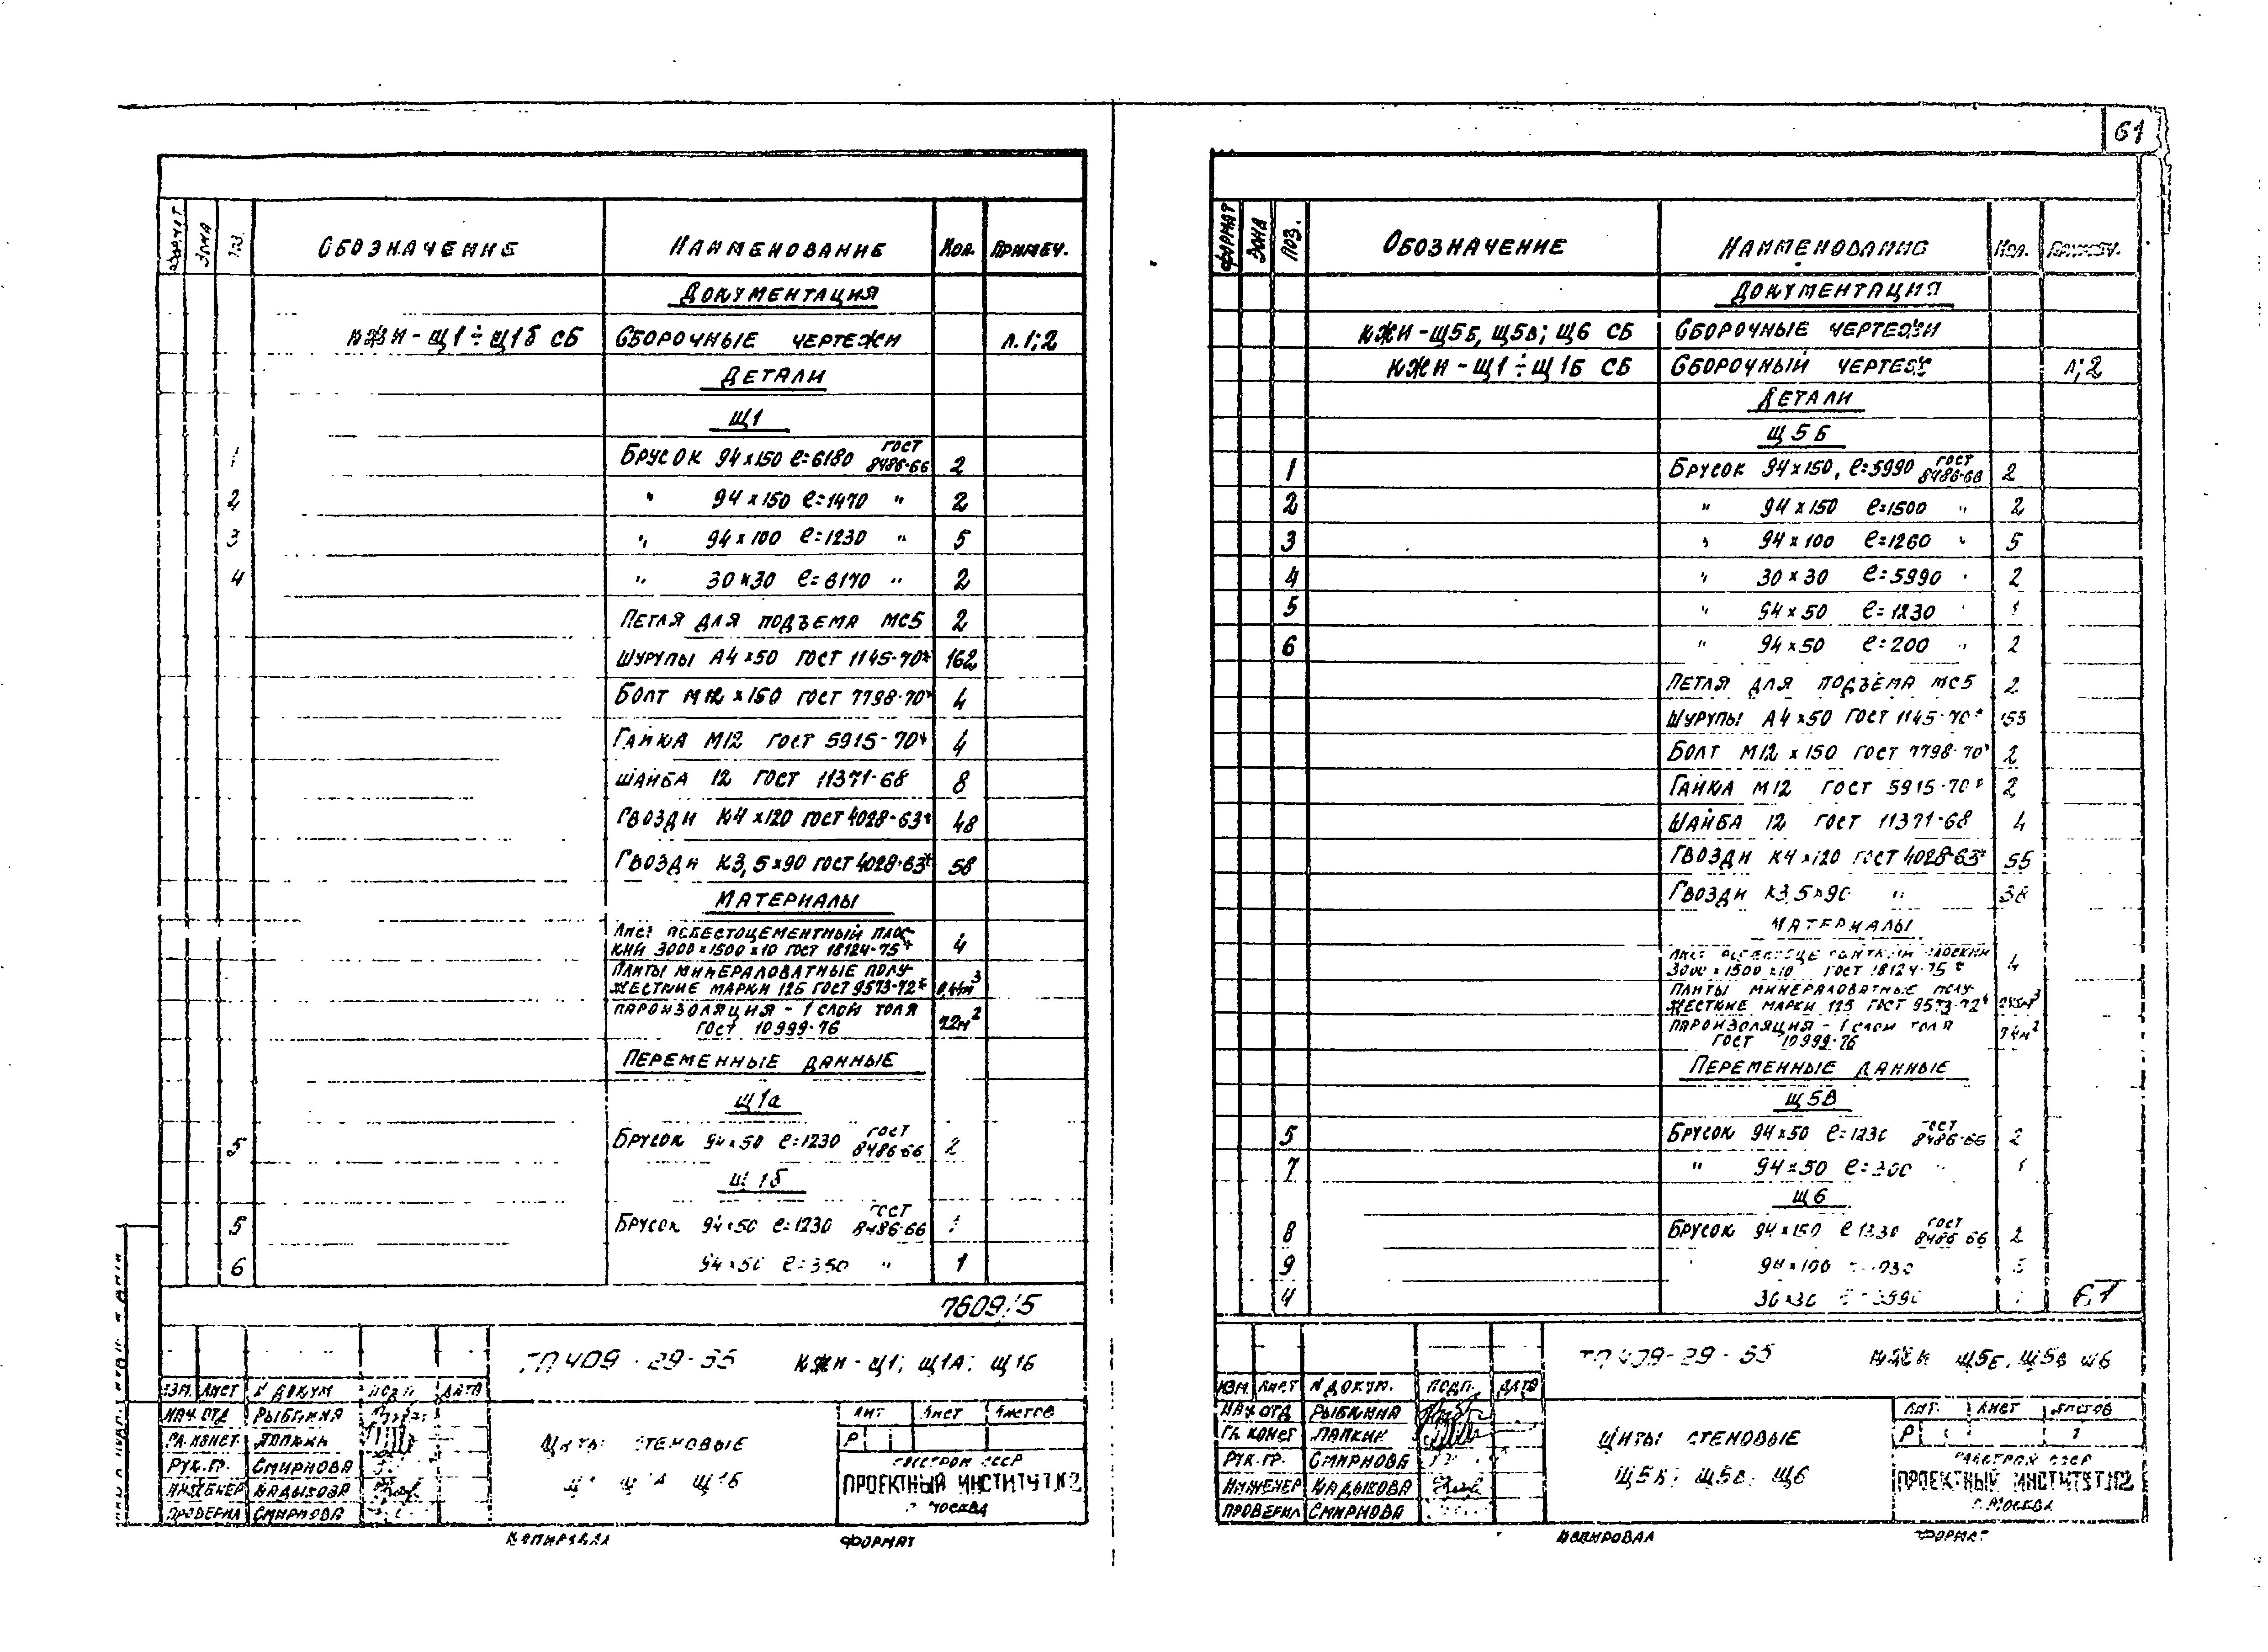 61
ФОРМАТ ЗОНА ПОЗ. ОБОЗНАЧЕНИЕ НАИМЕНОВАНИЕ КОЛ. ПРИМЕЧ.
ДОКУМЕНТАЦИЯ
КЖИ - Щ1 ÷ Щ1б СБ СБОРОЧНЫЕ ЧЕРТЕЖИ Л.1;2
ДЕТАЛИ
Щ1
1 БРУСОК 94×150 ℓ=6180 ГОСТ 8486-66 2
2 " 94×150 ℓ=1470 " 2
3 " 94×100 ℓ=1230 " 5
4 " 30×30 ℓ=6170 " 2
ПЕТЛЯ ДЛЯ ПОДЪЕМА МС5 2
ШУРУПЫ А4×50 ГОСТ 1145-70* 162
БОЛТ М12×150 ГОСТ 7798-70* 4
ГАЙКА М12 ГОСТ 5915-70* 4
ШАЙБА 12 ГОСТ 11371-68 8
ГВОЗДИ К4×120 ГОСТ 4028-63* 48
ГВОЗДИ К3,5×90 ГОСТ 4028-63* 58
МАТЕРИАЛЫ
ЛИСТ АСБЕСТОЦЕМЕНТНЫЙ ПЛОС-
КИЙ 3000×1500×10 ГОСТ 18124-75* 4
ПЛИТЫ МИНЕРАЛОВАТНЫЕ ПОЛУ-
ЖЕСТКИЕ МАРКИ 125 ГОСТ 9573-72*
ПАРОИЗОЛЯЦИЯ - 1 СЛОЙ ТОЛЯ
ГОСТ 10999-76
ПЕРЕМЕННЫЕ ДАННЫЕ
Щ1а
5 БРУСОК 94×50 ℓ=1230 ГОСТ 8486-66 2
Щ1б
5 БРУСОК 94×50 ℓ=1230 ГОСТ 8486-66 1
6 94×50 ℓ=350 " 1
7609/5
ТП 409-29-55 КЖИ - Щ1; Щ1А; Щ1Б
ИЗМ. ЛИСТ N ДОКУМ ПОДП ДАТА
НАЧ. ОТД РЫБКИНА
ГЛ. КОНСТ. ЛАПКИН
РУК. ГР. СМИРНОВА
ИНЖЕНЕР КАДЫКОВА
ПРОВЕРИЛ СМИРНОВА
ЩИТЫ СТЕНОВЫЕ
Щ1 Щ1А Щ1Б
ЛИТ ЛИСТ ЛИСТОВ
Р
ГОССТРОЙ СССР
ПРОЕКТНЫЙ ИНСТИТУТ №2
Г. МОСКВА
КОПИРОВАЛ ФОРМАТ
ФОРМАТ ЗОНА ПОЗ. ОБОЗНАЧЕНИЕ НАИМЕНОВАНИЕ КОЛ. ПРИМЕЧ.
ДОКУМЕНТАЦИЯ
КЖИ - Щ5Б, Щ5В; Щ6 СБ СБОРОЧНЫЕ ЧЕРТЕЖИ
КЖИ - Щ1 ÷ Щ1Б СБ СБОРОЧНЫЙ ЧЕРТЕЖ Л;2
ДЕТАЛИ
Щ5Б
1 БРУСОК 94×150, ℓ=5990 ГОСТ 8486-66 2
2 " 94×150 ℓ=1500 " 2
3 " 94×100 ℓ=1260 " 5
4 " 30×30 ℓ=5990 " 2
5 " 94×50 ℓ=1230 " 1
6 " 94×50 ℓ=200 " 2
ПЕТЛЯ ДЛЯ ПОДЪЕМА МС5 2
ШУРУПЫ А4×50 ГОСТ 1145-70* 153
БОЛТ М12×150 ГОСТ 7798-70* 2
ГАЙКА М12 ГОСТ 5915-70* 2
ШАЙБА 12 ГОСТ 11371-68 4
ГВОЗДИ К4×120 ГОСТ 4028-63* 55
ГВОЗДИ К3,5×90 " 38
МАТЕРИАЛЫ
ЛИСТ АСБЕСТОЦЕМЕНТНЫЙ ПЛОСКИЙ
3000×1500×10 ГОСТ 18124-75* 4
ПЛИТЫ МИНЕРАЛОВАТНЫЕ ПОЛУ-
ЖЕСТКИЕ МАРКИ 125 ГОСТ 9573-72*
ПАРОИЗОЛЯЦИЯ - 1 СЛОЙ ТОЛЯ
ГОСТ 10999-76
ПЕРЕМЕННЫЕ ДАННЫЕ
Щ5В
5 БРУСОК 94×50 ℓ=1230 ГОСТ 8486-66 2
7 " 94×50 ℓ=300 " 1
Щ6
8 БРУСОК 94×150 ℓ 1230 ГОСТ 8486-66 2
9 94×100
4 30×30
61
ТП 409-29-55 КЖИ Щ5Б, Щ5В Щ6
ИЗМ. ЛИСТ N ДОКУМ. ПОДП. ДАТА
НАЧ. ОТД РЫБКИНА
ГЛ. КОНСТ ЛАПКИН
РУК. ГР. СМИРНОВА
ИНЖЕНЕР КАДЫКОВА
ПРОВЕРИЛ СМИРНОВА
ЩИТЫ СТЕНОВЫЕ
Щ5Б; Щ5В; Щ6
ЛИТ. ЛИСТ ЛИСТОВ
Р 1
ГОССТРОЙ СССР
ПРОЕКТНЫЙ ИНСТИТУТ №2
Г. МОСКВА
КОПИРОВАЛ ФОРМАТ